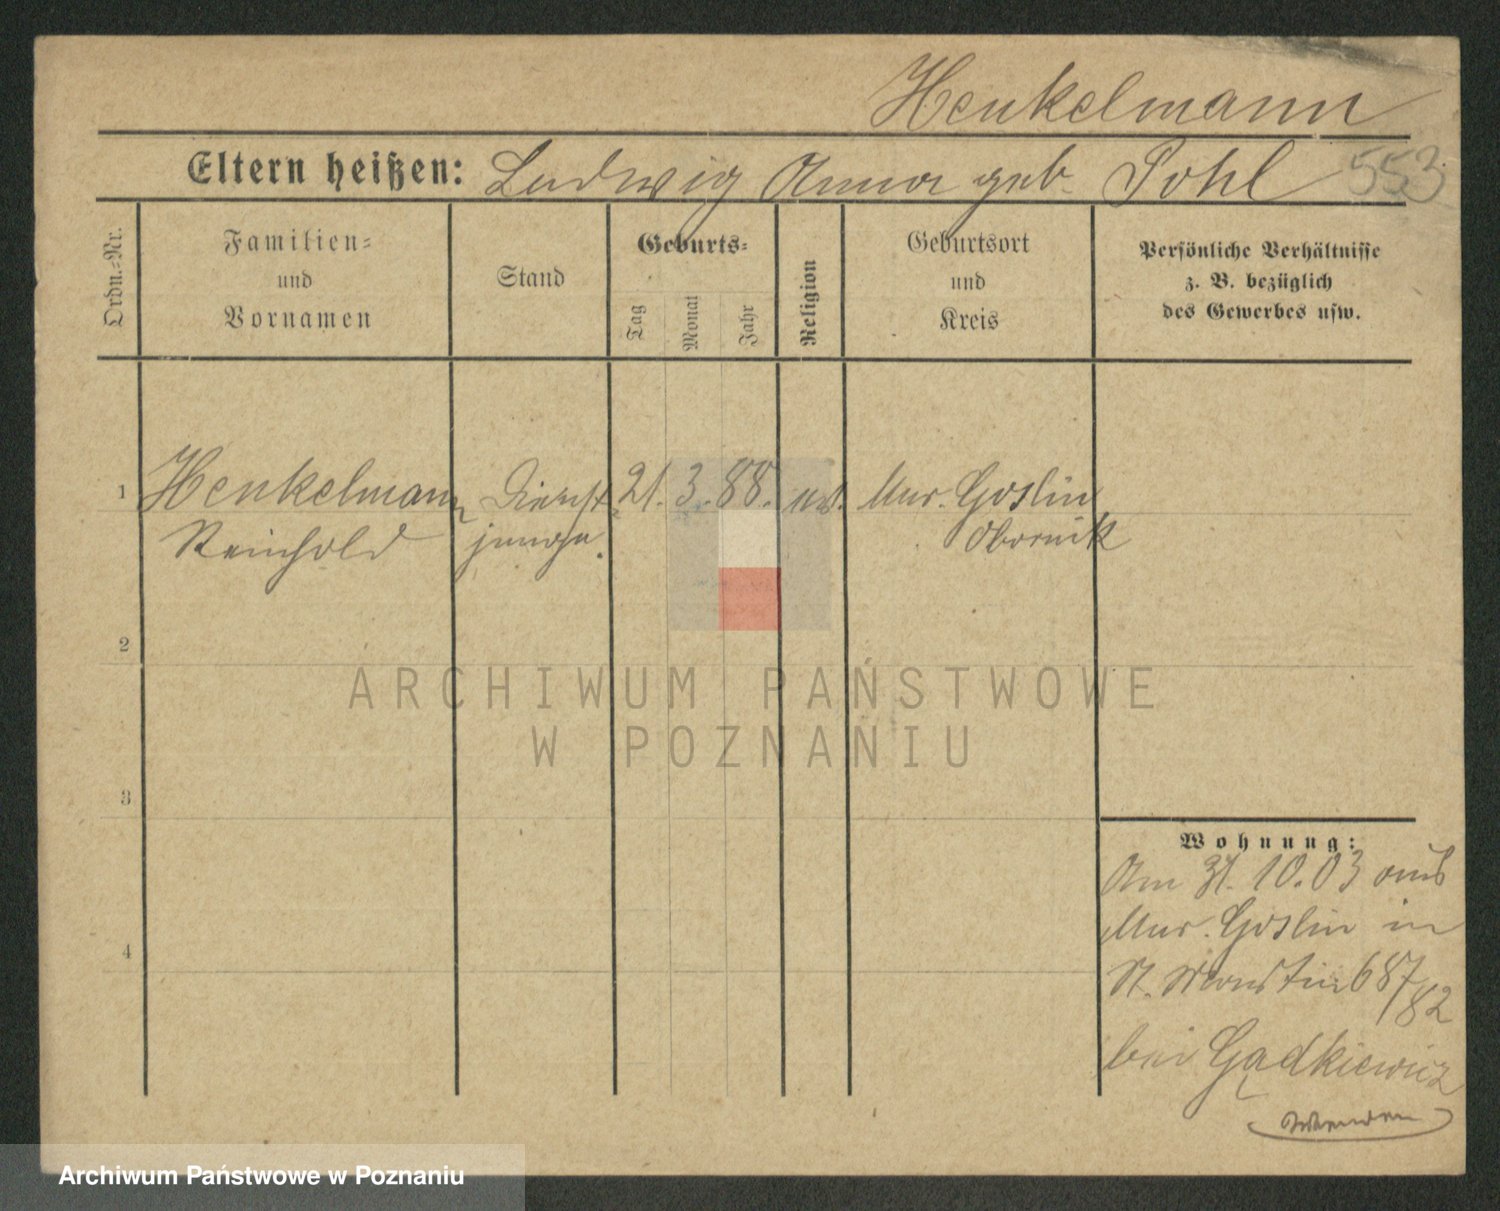 Henkelmann
Eltern heißen: Ludwig Anna geb. Pohl 553
Ordn.-Nr.
Familien-
und
Vornamen
Stand
Geburts-
Tag
Monat
Jahr
Religion
Geburtsort
und
Kreis
Persönliche Verhältnisse
z. B. bezüglich
des Gewerbes usw.
1 Henkelmann Dienst- 21. 3. 88. ev. Mur. Goslin
Reinhold junge. Obornik
2
3
4
Wohnung:
Am 31. 10. 03 aus
Mur. Goslin in
St. Martin 68/
/82
bei Gądkiewicz
Wenden
ARCHIWUM PAŃSTWOWE
W POZNANIU
Archiwum Państwowe w Poznaniu